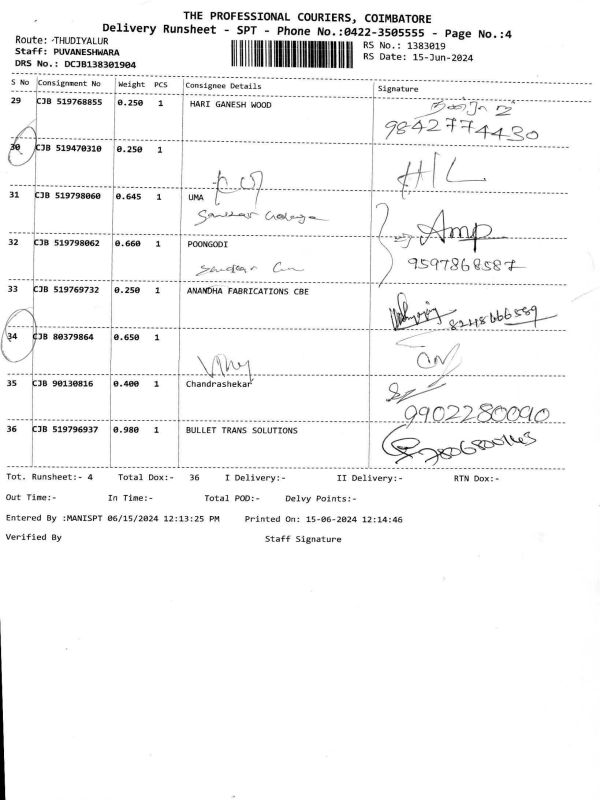 THE PROFESSIONAL COURIERS, COIMBATORE
Delivery Runsheet - SPT - Phone No.:0422-3505555 - Page No.:4
Route: THUDIYALUR
RS No.: 1383019
Staff: PUVANESHWARA
RS Date: 15-Jun-2024
DRS No.: DCJB138301904
S No Consignment No Weight PCS Consignee Details Signature
29 CJB 519768855 0.250 1 HARI GANESH WOOD
9842774430
30 CJB 519470310 0.250 1
H/L
31 CJB 519798060 0.645 1 UMA
Amp
32 CJB 519798062 0.660 1 POONGODI
9597868587
33 CJB 519769732 0.250 1 ANANDHA FABRICATIONS CBE
34 CJB 80379864 0.650 1
35 CJB 90130816 0.400 1 Chandrashekar
9902280090
36 CJB 519796937 0.980 1 BULLET TRANS SOLUTIONS
Tot. Runsheet:- 4 Total Dox:- 36 I Delivery:- II Delivery:- RTN Dox:-
Out Time:- In Time:- Total POD:- Delvy Points:-
Entered By :MANISPT 06/15/2024 12:13:25 PM Printed On: 15-06-2024 12:14:46
Verified By Staff Signature